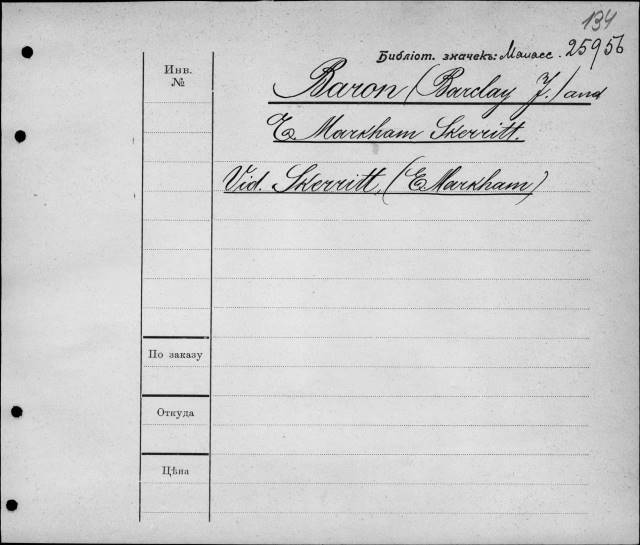 134
Библіот. значекъ: Манасс. 25956
Инв.
№
Baron (Barclay J.) and
E. Markham Skerritt.
Vid. Skerritt, (E Markham)
По заказу
Откуда
Цѣна